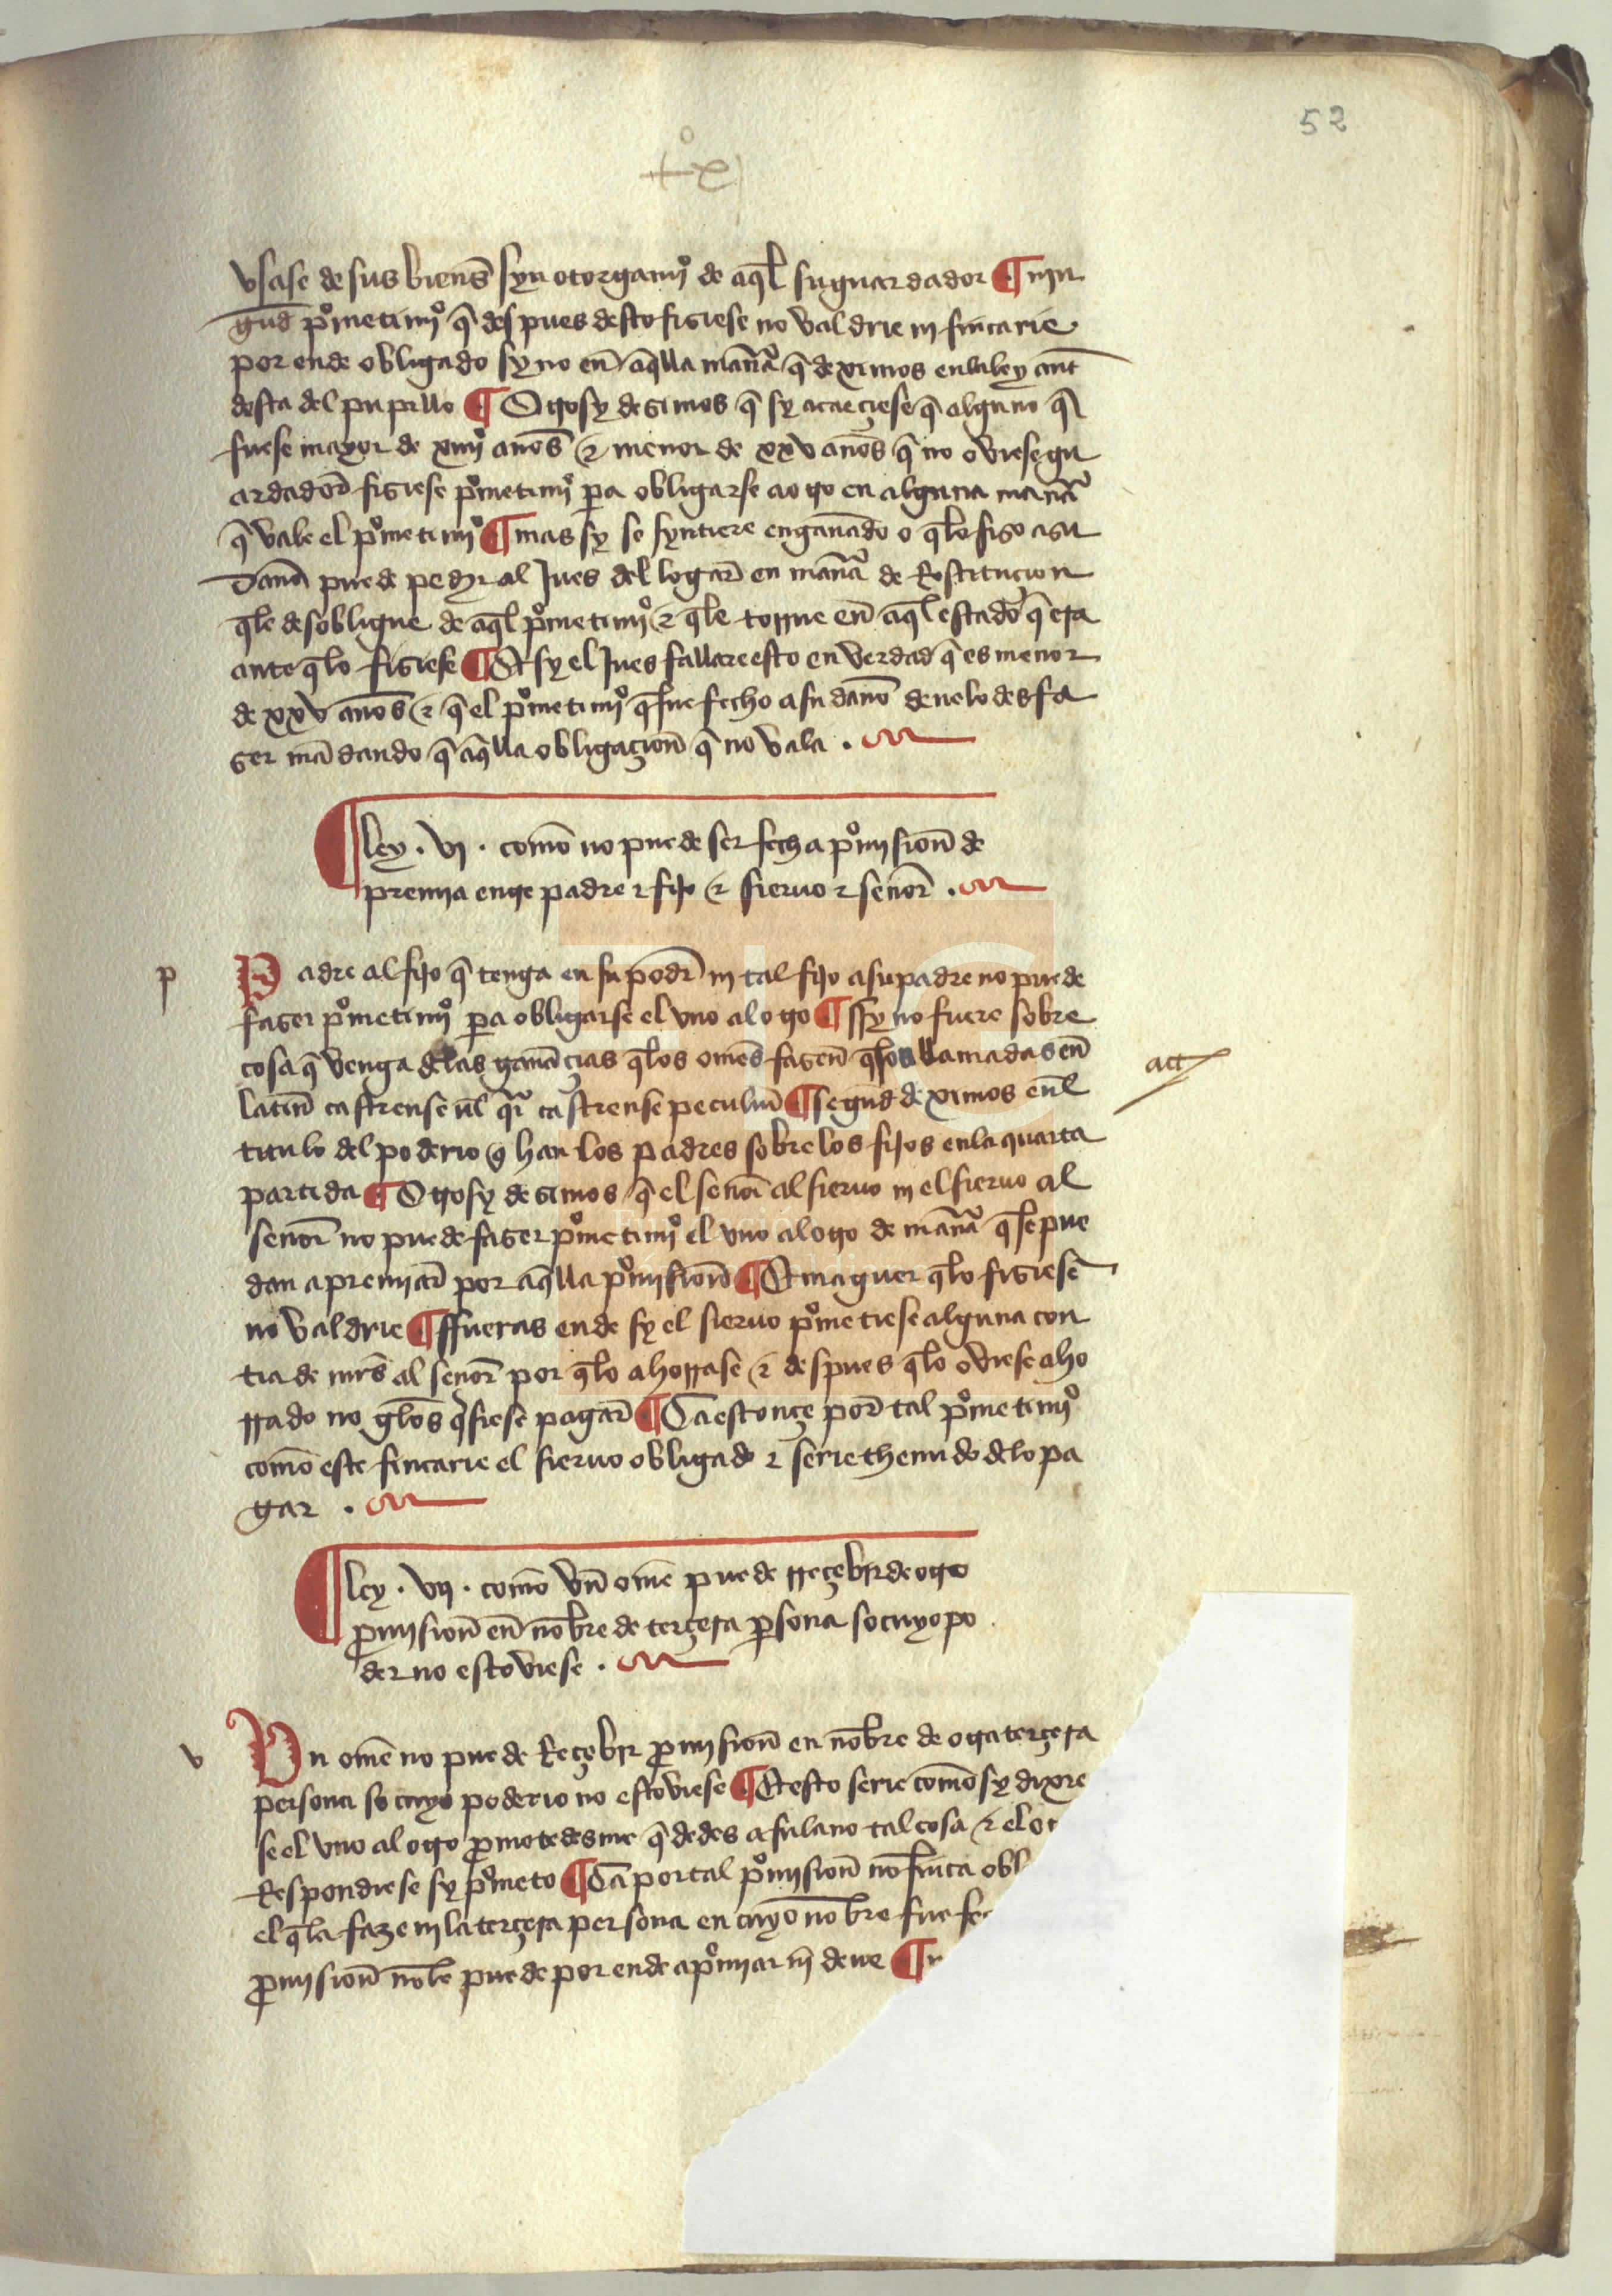 52
vsase de sus bienes̃ syn otorgamj̊ de aq̃l su guardador ¶ njn
gud̃ p̊metimj̊ q̃ despues desto fisiese no valdrie nj fincarie
por ende obligado sy no en̄ aq̃lla man̄a q̃ deximos en la ley ant̃
desta del pupillo ¶ Otrosy desimos q̃ sy acaeçiese q̃ alguno q̃
fuese mayor de xiiij̊ anos̃ ⁊ menor de xxv anos̃ q̃ no oviese gu
ardador̃ fisiese p̊metimj̊ p̱a obligarse a otro en alguna man̄a
q̃ vale el p̊metimj̊ ¶ mas sy se syntiere engan̄ado o q̃lo fiso a su
dan̄o puede pedjr al Jues del logar̃ en man̄a de Restituçion
q̃le desobligue de aq̃l p̊metimj̊ ⁊ q̃le torrne en̄ aq̃l estado q̃ era
ante q̃lo fisiese ¶ Et sy el Jues fallare esto en verdad q̃ es menor
de xxv anos̃ ⁊ q̃ el p̊metimj̊ q̃ fue fecho a su dan̄o deuelo desfa
ser mãdando q̃ aq̃lla obligaçion̄ q̃ no vala .
¶ ley . vj . comō no puede ser fecha p̊mjsion̄ de
premja entre padre ⁊ fijo ⁊ sieruo ⁊ senor̃ .
p
Padre al fijo q̃ tenga en su poder̃ nj tal fijo a su padre no puede
faser p̊metimj̊ p̱a obligarse el vno al otro ¶ ssy no fuere sobre
cosa q̃ venga delas ganãçias q̃los omes̃ fasen̄ q̃ son llamadas en̄
att
latin̄ castrense vl̃ q̃i castrense peculiu̅ ¶ segund̃ deximos en̄l
titulo del poderio q̃ han los padres sobre los fijos en la quarta
partida ¶ Otrosy desimos q̃ el senor̃ al sieruo nj el sieruo al
senor̃ no puede faser p̊metimj̊ el vno al otro de man̄a q̃le pue
dan apremjar̃ por aq̃lla p̊mjsion̄ ¶ Et maguer q̃lo fisiesen̄
no valdrie ¶ ffueras ende sy el sieruo p̊metiese alguna con
tia de mrs̃ al senor̃ por q̃lo ahorrase ⁊ despues q̃lo oviese aho
rrado no gelos q̃siese pagar̃ ¶ Ca estonçe por̃ tal p̊metimj̊
comō este fincarie el sieruo obligado ⁊ serie thenudo delo pa
gar .
¶ ley . vij . comō vn̄ ome̅ puede rreçebjr de otro
ꝓmjsion̄ en̄ no̅bre de terçera p̱sona so cuyo po
der no estoviese .
v
Vn ome̅ no puede Reçebjr ꝓmjsion̄ en no̅bre de otra terçera
persona so cuyo poderio no estoviese ¶ Et esto serie comō sy dixie
se el vno al otro ꝓmetedesme q̃ dedes a fulano tal cosa ⁊ el ot
Respondiese sy p̊meto ¶ Ca por tal p̊mjsion̄ no̅ finca obl
el q̃la faze nj la terçera persona en cuyo no̅bre fue fe
ꝓmjsion̄ no̅le puede por ende ap̊mjar nj̅ deue ¶